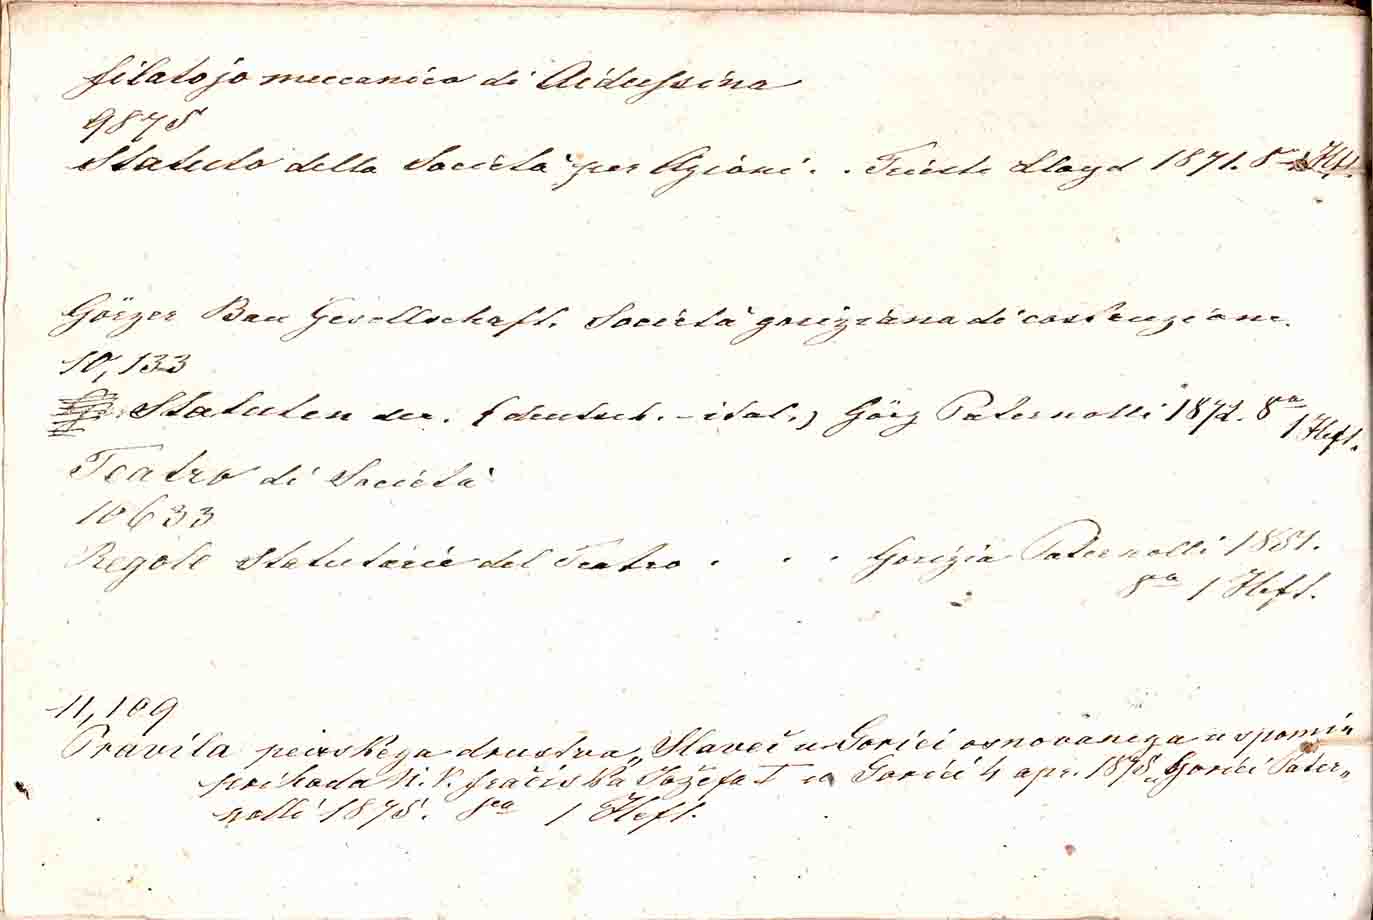 filatojo meccanico di Aidussina
9875
Statuto della Società per Azioni . . Trieste Lloyd 1871. 8°
Görzer Bau Gesellschaft. Società goriziana di costruzione.
10,133
Statuten der. (deutsch. - ital.) Görz Paternolli 1872. 8° 1 Heft.
Teatro di Società
10633
Regole Statutarie del Teatro . . . Gorizia Paternolli 1881.
8° 1 Heft.
11,109
Pravila pevskega drustva „Slaveč u Gorici osnovanega u spomin
prihoda N. V. Jožefa I u Gorici 4 apr. 1875 „Gorici Pater„
nolli 1875. 8° 1 Heft.